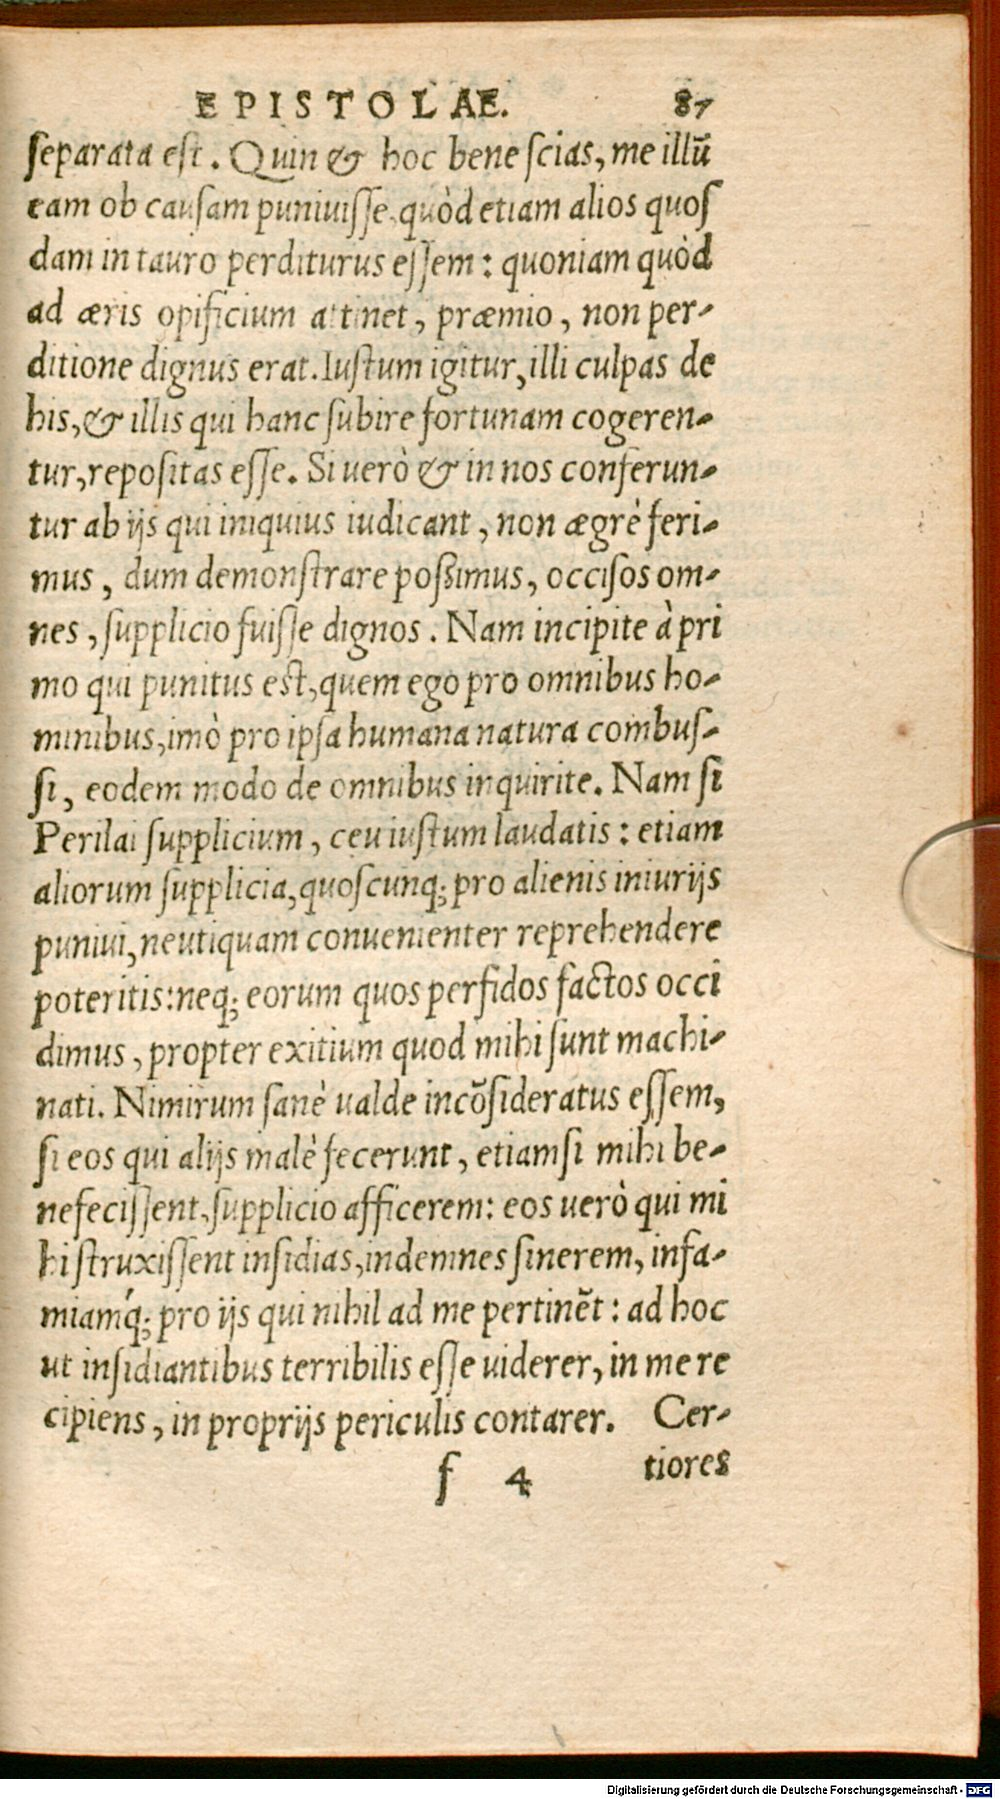 EPISTOLAE. 87
ſeparata eſt. Quin & hoc bene ſcias, me illū
eam ob cauſam puniuiſſe, quòd etiam alios quoſ
dam in tauro perditurus eſſem: quoniam quòd
ad æris opificium attinet, præmio, non per-
ditione dignus erat. Iuſtum igitur, illi culpas de
his, & illis qui hanc ſubire fortunam cogeren-
tur, repoſitas eſſe. Si uerò & in nos conferun-
tur ab ijs qui iniquius iudicant, non ægrè feri-
mus, dum demonſtrare poßimus, occiſos om-
nes, ſupplicio fuiſſe dignos. Nam incipite à pri
mo qui punitus eſt, quem ego pro omnibus ho-
minibus, imò pro ipſa humana natura combuſ-
ſi, eodem modo de omnibus inquirite. Nam ſi
Perilai ſupplicium, ceu iuſtum laudatis: etiam
aliorum ſupplicia, quoſcunq; pro alienis iniurijs
puniui, neutiquam conuenienter reprehendere
poteritis: neq; eorum quos perfidos factos occi
dimus, propter exitium quod mihi ſunt machi-
nati. Nimirum ſanè ualde incōſideratus eſſem,
ſi eos qui alijs malè fecerunt, etiamſi mihi be-
nefeciſſent, ſupplicio afficerem: eos uerò qui mi
hi ſtruxiſſent inſidias, indemnes ſinerem, infa-
miamq́; pro ijs qui nihil ad me pertinēt: ad hoc
ut inſidiantibus terribilis eſſe uiderer, in me re
cipiens, in proprijs periculis contarer. Cer-
f 4 tiores
Digitalisierung gefördert durch die Deutsche Forschungsgemeinschaft - DFG